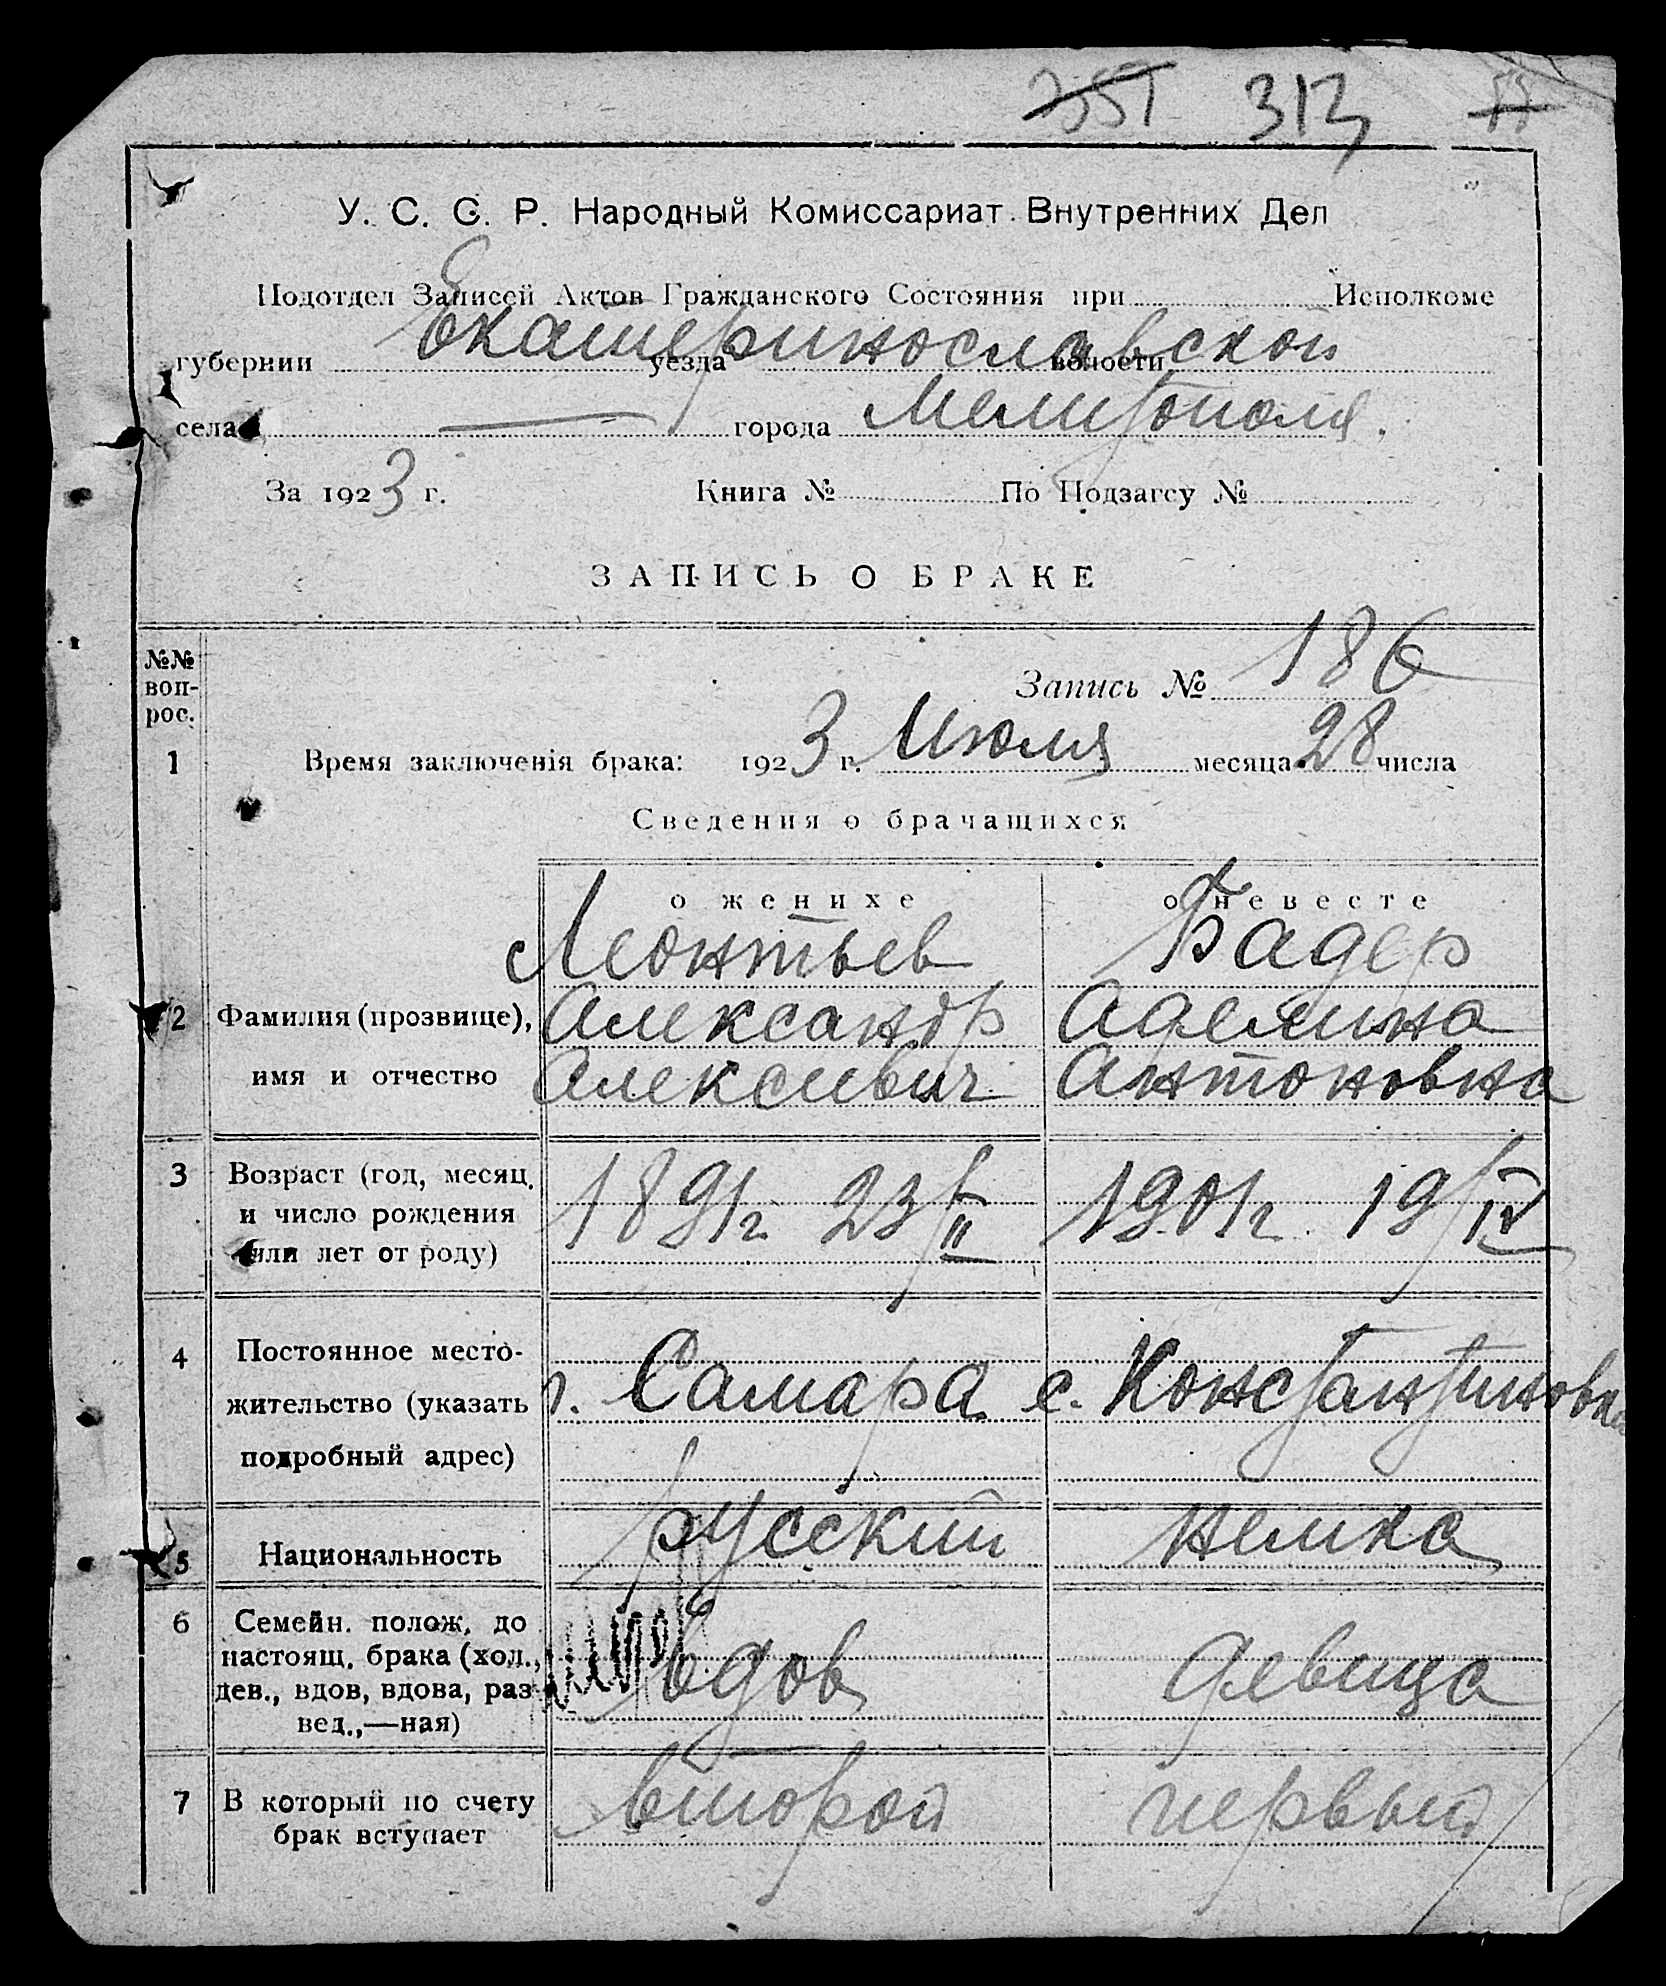 351 313 55
У. С. С. Р. Народный Комиссариат Внутренних Дел
Подотдел Записей Актов Гражданского Состояния при Исполкоме
губернии Екатеринославской уезда волости
села города Мелитополя.
За 1923 г. Книга № По Подзагсу №
ЗАПИСЬ О БРАКЕ
№№ воп-рос.
Запись № 186
1 Время заключенія брака: 1923 г. Июля месяца 28 числа
Сведения о брачащихся
о женихе о невесте
Леонтьев Бадер
2 Фамилия (прозвище), Александр Аделина
имя и отчество Алексиевич Антоновна
3 Возраст (год, месяц,
и число рождения 1891г. 23/II 1901г. 19/IV
или лет от роду)
4 Постоянное место-
жительство (указать г. Самара с. Константиновка
подробный адрес)
5 Национальность русский немка
6 Семейн. полож. до
настоящ. брака (хол.,
дев., вдов, вдова, раз- вдов девица
вед.,—ная)
7 В который по счету второй первый
брак вступает